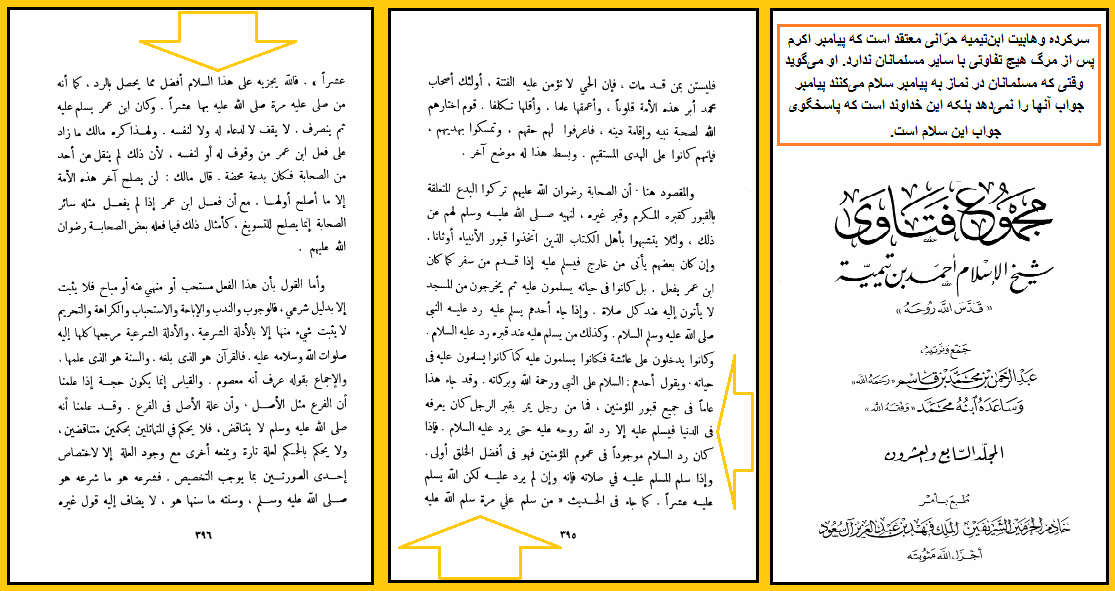 سرکرده وهابیت ابن‌تیمیه حرّانی معتقد است که پیامبر اکرم
پس از مرگ هیچ تفاوتی با سایر مسلمانان ندارد. او می‌گوید
وقتی که مسلمانان در نماز به پیامبر سلام می‌کنند پیامبر
جواب آنها را نمی‌دهد بلکه این خداوند است که پاسخگوی
جواب این سلام است.
مجموع فتاوى
شيخ الإسلام أحمد بن تيمية
« قدّس الله روحه »
جمع وترتيب
عبد الرحمن بن محمد بن قاسم «رحمه الله»
وساعده ابنه محمد «وفقه الله»
المجلد السابع والعشرون
طبع بأمر
خادم الحرمين الشريفين الملك فهد بن عبد العزيز آل سعود
أجزل الله مثوبته
فليستن بمن قد مات ، فإن الحي لا تؤمن عليه الفتنة ، أولئك أصحاب
محمد أبر هذه الأمة قلوباً ، وأعمقها علما ، وأقلها تكلفا . قوم اختارهم
الله لصحبة نبيه وإقامة دينه ، فاعرفوا لهم حقهم ، وتمسكوا بهديهم ،
فإنهم كانوا على الهدى المستقيم . وبسط هذا له موضع آخر .
والمقصود هنا : أن الصحابة رضوان الله عليهم تركوا البدع المتعلقة
بالقبور كقبره المكرم وقبر غيره ، لنهيه صلى الله عليه وسلم لهم عن
ذلك ، ولئلا يتشبهوا بأهل الكتاب الذين اتخذوا قبور الأنبياء أوثانا .
وإن كان بعضهم يأتى من خارج فيسلم عليه إذا قدم من سفر كما كان
ابن عمر يفعل . بل كانوا فى حياته يسلمون عليه ثم يخرجون من المسجد
لا يأتون إليه عند كل صلاة . وإذا جاء أحدهم يسلم عليه رد عليه النبي
صلى الله عليه وسلم السلام . وكذلك من يسلم عليه عند قبره رد عليه السلام .
وكانوا يدخلون على عائشة فكانوا يسلمون عليه كما كانوا يسلمون عليه فى
حياته . ويقول أحدهم : السلام على النبي ورحمة الله وبركاته . وقد جاء هذا
عاماً فى جميع قبور المؤمنين ، فما من رجل يمر بقبر الرجل كان يعرفه
فى الدنيا فيسلم عليه إلا رد الله روحه عليه حتى يرد عليه السلام . فإذا
كان رد السلام موجوداً فى عموم المؤمنين فهو فى أفضل الخلق أولى .
وإذا سلم المسلم عليه فى صلاته فإنه وإن لم يرد عليه لكن الله يسلم
عليه عشراً . كما جاء فى الحديث « من سلم علي مرة سلم الله عليه
٣٩٥
عشراً » . فالله يجزيه على هذا السلام أفضل مما يحصل بالرد ، كما أنه
من صلى عليه مرة صلى الله عليه بها عشراً . وكان ابن عمر يسلم عليه
ثم ينصرف . لا يقف لا لدعاء له ولا لنفسه . ولهذا كره مالك ما زاد
على فعل ابن عمر من وقوف له أو لنفسه ، لأن ذلك لم ينقل عن أحد
من الصحابة فكان بدعة محضة . قال مالك : لن يصلح آخر هذه الأمة
إلا ما أصلح أولها . مع أن فعل ابن عمر إذا لم يفعل مثله سائر
الصحابة إنما يصلح للتسويغ ، كأمثال ذلك فيما فعله بعض الصحابة رضوان
الله عليهم .
وأما القول بأن هذا الفعل مستحب أو منهي عنه أو مباح فلا يثبت
إلا بدليل شرعي ، فالوجوب والندب والإباحة والاستحباب والكراهة والتحريم
لا يثبت شيء منها إلا بالأدلة الشرعية ، والأدلة الشرعية مرجعها كلها إليه
صلوات الله وسلامه عليه . فالقرآن هو الذى بلغه . والسنة هو الذى علمها .
والإجماع بقوله عرف أنه معصوم . والقياس إنما يكون حجة إذا علمنا
أن الفرع مثل الأصل . وأن علة الأصل فى الفرع . وقد علمنا أنه
صلى الله عليه وسلم لا يتناقض ، فلا يحكم في المتماثلين بحكمين متناقضين ،
ولا يحكم بالحكم لعلة تارة ويمنعه أخرى مع وجود العلة إلا لاختصاص
إحدى الصورتين بما يوجب التخصيص . فشرعه هو ما شرعه هو
صلى الله عليه وسلم ، وسنته ما سنها هو ، لا يضاف إليه قول غيره
٣٩٦